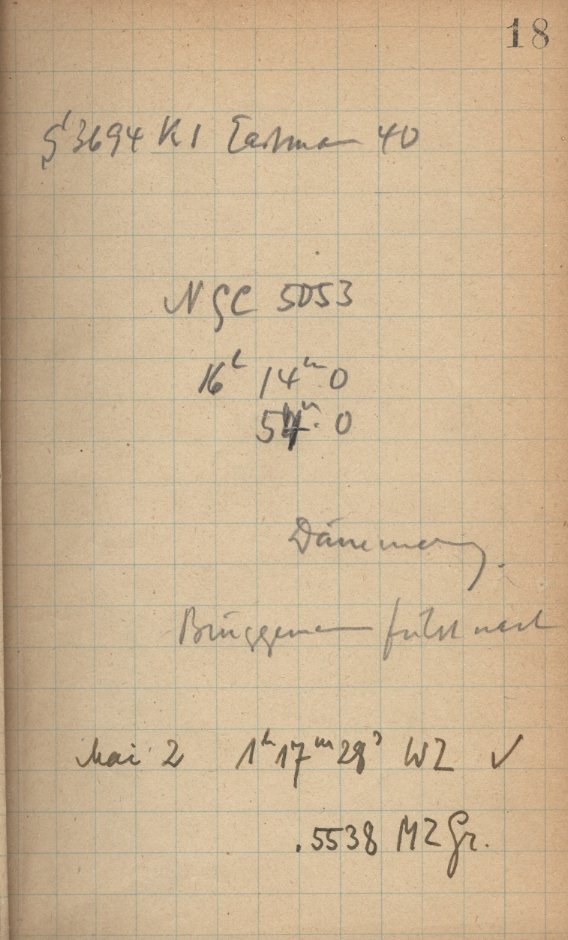 18
S 3694 K1 Eastman 40
NGC 5053
16h 14m.0
54m.0
Dämmerung.
Brüggemann führt nach
Mai 2 1h17m28s WZ ✓
.5538 MZ Gr.